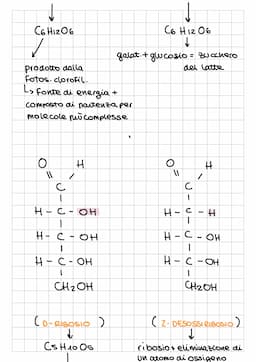 C6H12O6
prodotto dalla
fotos. clorofil.
↳ Fonte di energia +
composto di partenza per
molecole più complesse
C6H12O6
galat + glucosio = zucchero
del latte
O H
C
H - C - OH
H - C - OH
H - C - OH
CH2OH
(D-RIBOSIO)
C5H10O5
O H
C
H - C - H
H - C - OH
H - C - OH
CH2OH
(2-DESOSSIRIBOSIO)
ribosio + eliminazione di
un atomo di ossigeno